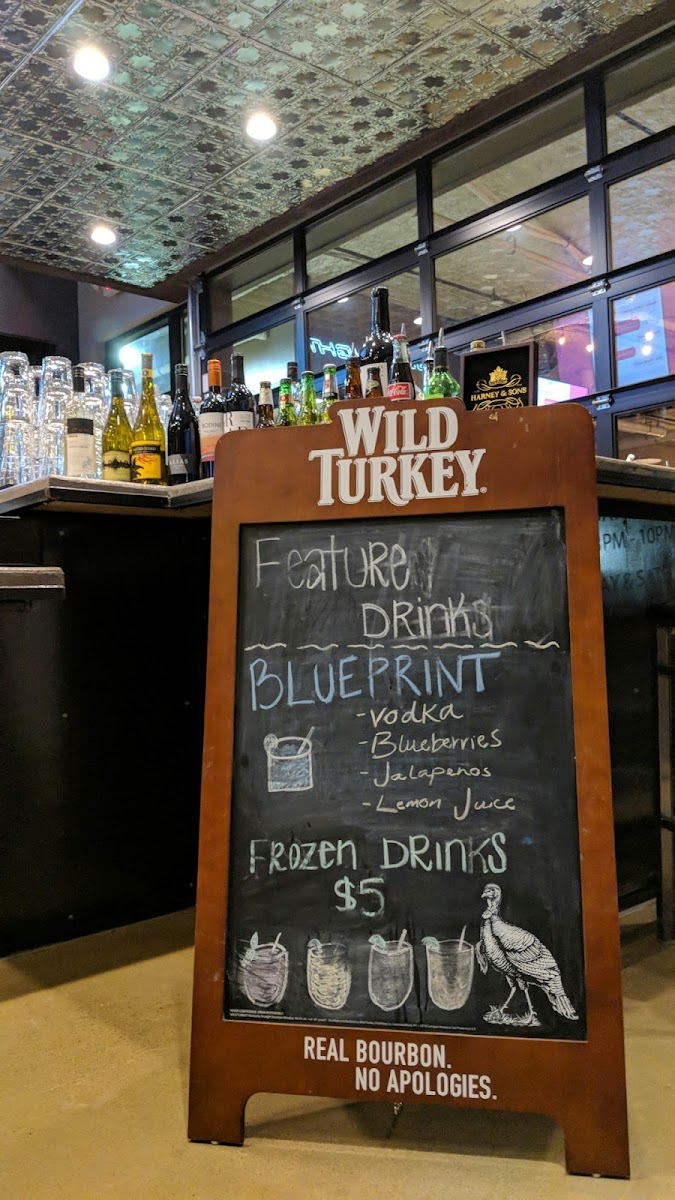 HARNEY & SONS
Coca-Cola
WILD
TURKEY
Feature
DRINKS
BLUEPRINT
-Vodka
-Blueberries
-Jalapeños
-Lemon Juice
FROZEN DRINKS
$5
REAL BOURBON.
NO APOLOGIES.
PM - 10PM